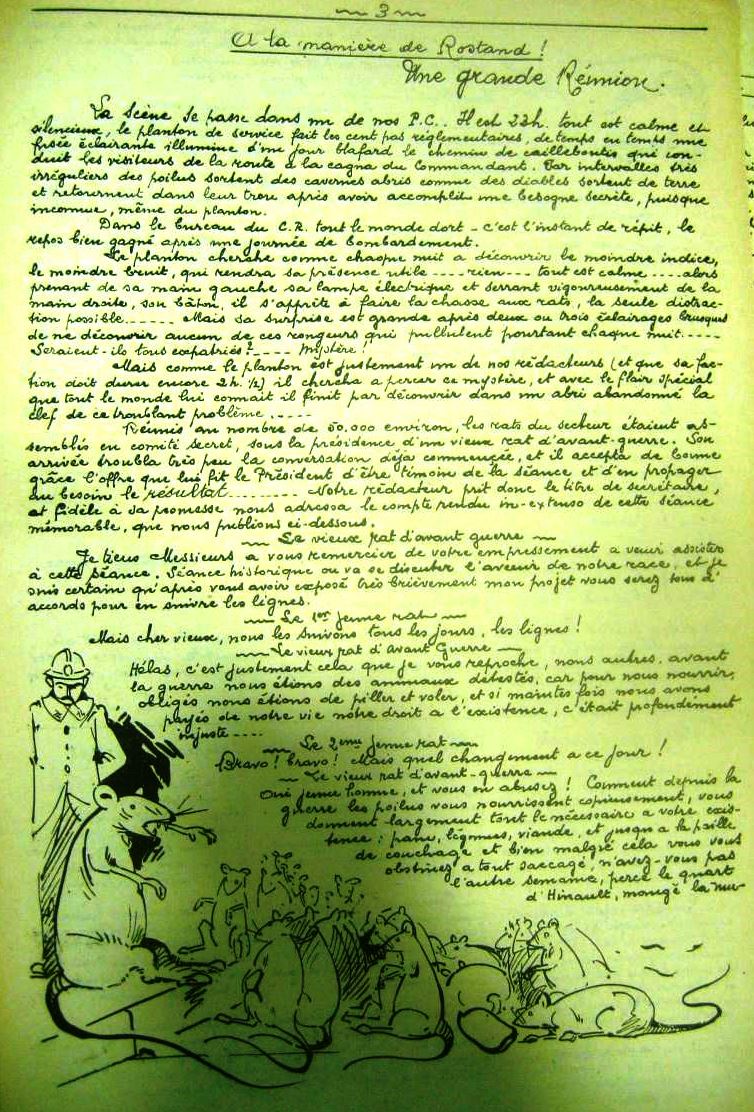 — 3 —
A la manière de Rostand !
Une grande Réunion.
La Scène se passe dans un de nos P.C.. Il est 22h. tout est calme et
silencieux, le planton de service fait les cent pas réglementaires, de temps en temps une
fusée éclairante illumine d'un jour blafard le chemin de caillebontis qui con-
duit les visiteurs de la route à la cagna du Commandant. Par intervalles très
irréguliers des poilus sortent des cavernes abris comme des diables sortent de terre
et retournent dans leur trou après avoir accompli une besogne secrète, puisque
inconnue, même du planton.
Dans le bureau du C.R. tout le monde dort - c'est l'instant de répit, le
repos bien gagné après une journée de bombardement.
Le planton cherche comme chaque nuit a découvrir le moindre indice,
le moindre bruit, qui rendra sa présence utile .... rien .... tout est calme .... alors
prenant de sa main gauche sa lampe électrique et serrant vigoureusement de la
main droite, son bâton, il s'apprête à faire la chasse aux rats, la seule distrac-
tion possible...... Mais sa surprise est grande après deux ou trois éclairages brusques
de ne découvrir aucun de ces rongeurs qui pullulent pourtant chaque nuit.....
Seraient-ils tous expatriés? .... Mystère !
Mais comme le planton est justement un de nos rédacteurs (et que sa fac-
tion doit durer encore 2h. ½) il chercha a percer ce mystère, et avec le flair spécial
que tout le monde lui connait il finit par découvrir dans un abri abandonné la
clef de ce troublant problème .....
Réunis au nombre de 50.000 environ, les rats du secteur étaient as-
semblés en comité secret, sous la présidence d'un vieux rat d'avant-guerre. Son
arrivée troubla très peu la conversation déja commencée, et il accepta de bonne
grâce l'offre que lui fit le Président d'être témoin de la séance et d'en propager
au besoin le résultat ........ Notre rédacteur prit donc le titre de secrétaire,
et fidèle à sa promesse nous adressa le compte rendu in-extenso de cette séance
mémorable, que nous publions ci-dessous.
— Le vieux rat d'avant guerre —
Je tiens Messieurs a vous remercier de votre empressement a venir assister
à cette séance. Séance historique ou va se discuter l'avenir de notre race, et je
suis certain qu'après vous avoir exposé très brièvement mon projet vous serez tous d'
accords pour en suivre les lignes.
— Le 1er jeune rat —
Mais cher vieux, nous les suivons tous les jours, les lignes !
— Le vieux rat d'Avant Guerre —
Hélas, c'est justement cela que je vous reproche, nous autres, avant
la guerre nous étions des animaux détestés, car pour nous nourrir,
obligés nous étions de piller et voler, et si maintes fois nous avons
payés de notre vie notre droit a l'existence, c'était profondément
injuste ....
— Le 2eme jeune rat —
Bravo ! bravo ! Mais quel changement a ce jour !
— Le vieux rat d'avant-guerre —
Oui jeune homme, et vous en abusez ! Comment depuis la
guerre les poilus vous nourrissent copieusement, vous
donnent largement tout le nécessaire a votre exis-
tence : pain, légumes, viande, et jusqu'a la paille
de couchage et bien malgré cela vous vous
obstinez a tout saccagé, n'avez-vous pas
l'autre semaine, percé le quart
d'Hinault, mangé la mu-